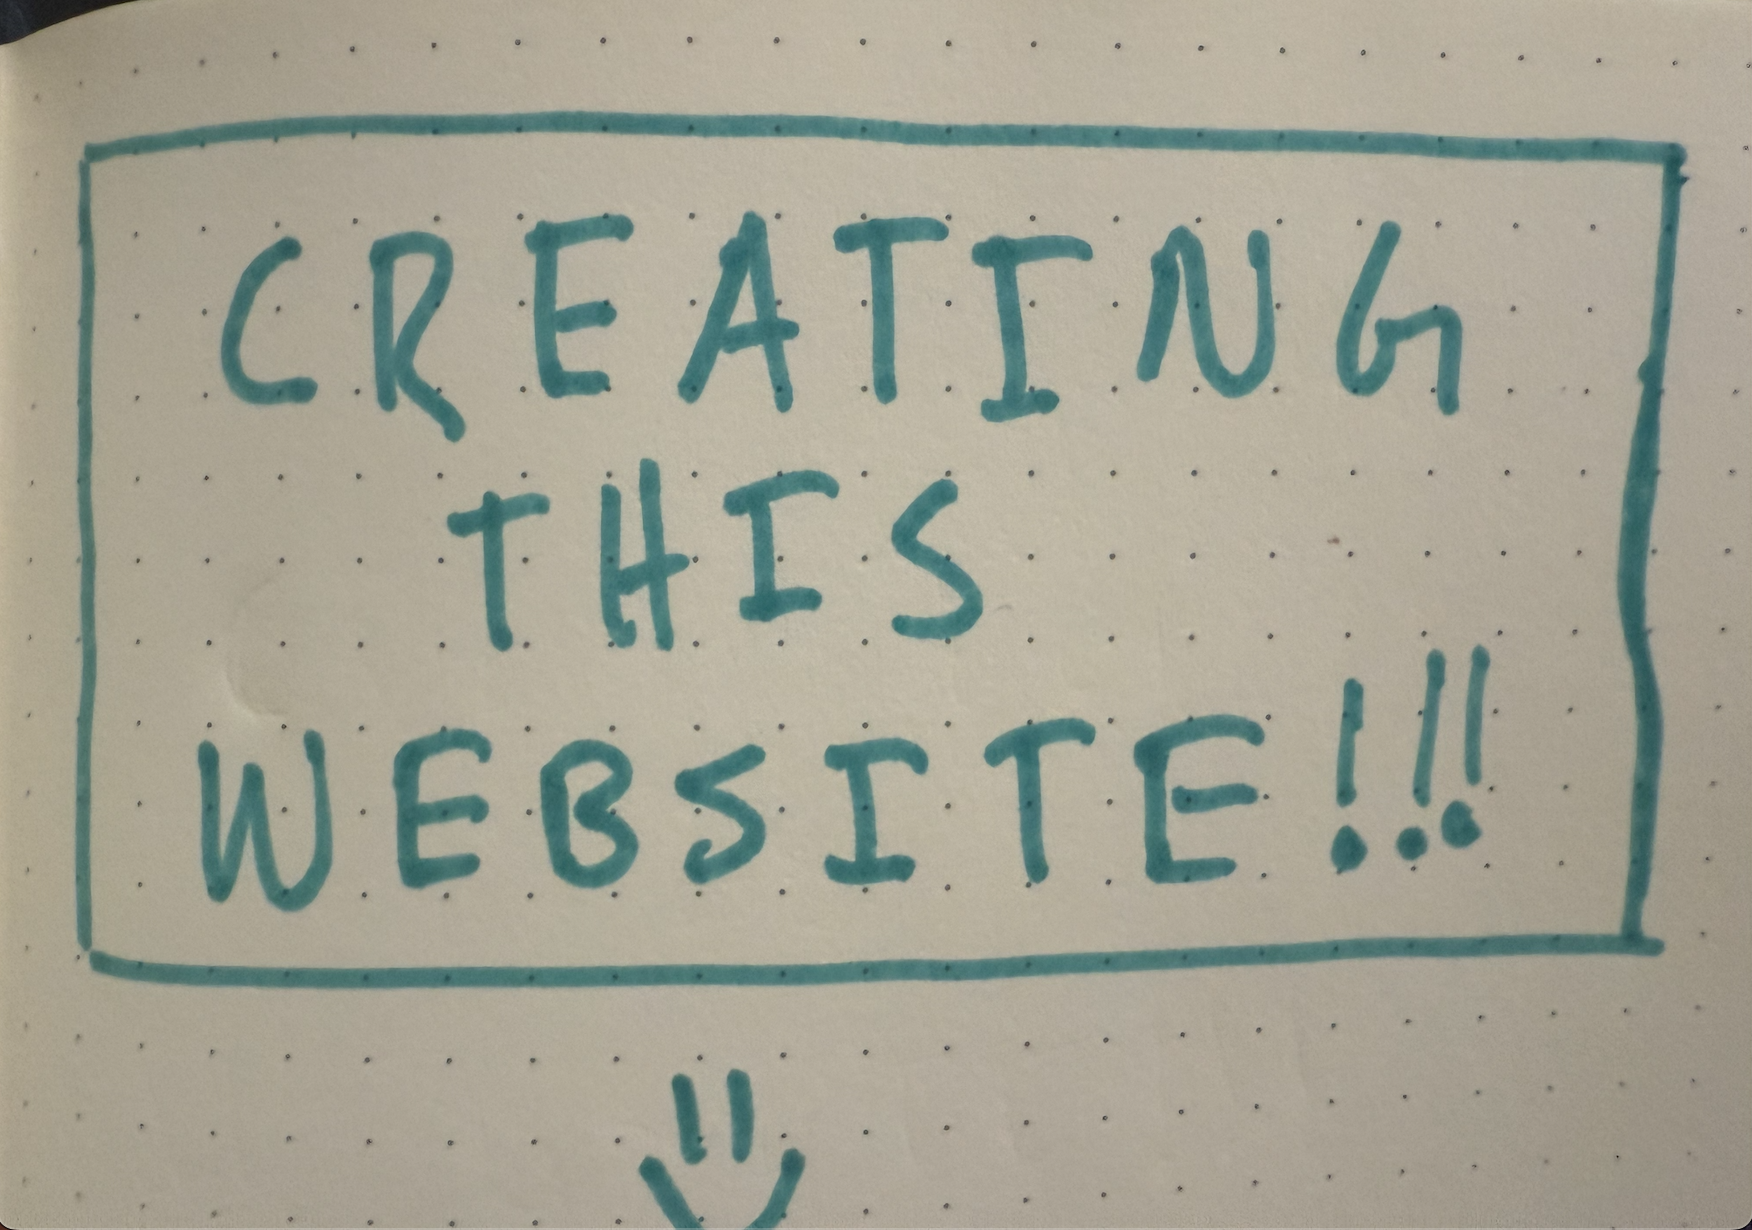 CREATING
THIS
WEBSITE!!!